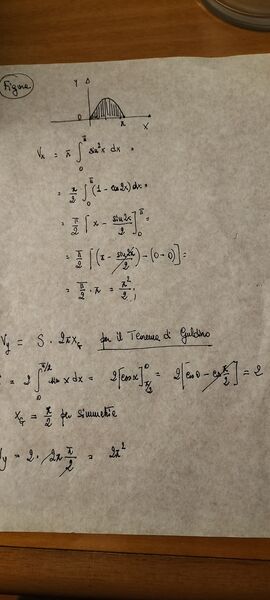 Figura
Y
0 π X
Vx = π ∫₀^π sin²x dx =
= π/2 ∫₀^π (1 - cos2x) dx =
= π/2 [x - sin2x/2]₀^π =
= π/2 [(π - sin2π/2) - (0 - 0)] =
= π/2 · π = π²/2 ;
Vy = S · 2π x_G per il Teorema di Guldino
= 2 ∫₀^{π/2} sin x dx = 2[cos x]_{π/2}^0 = 2[cos 0 - cos π/2] = 2
x_G = π/2 per simmetria
Vy = 2 · 2π π/2 = 2π²